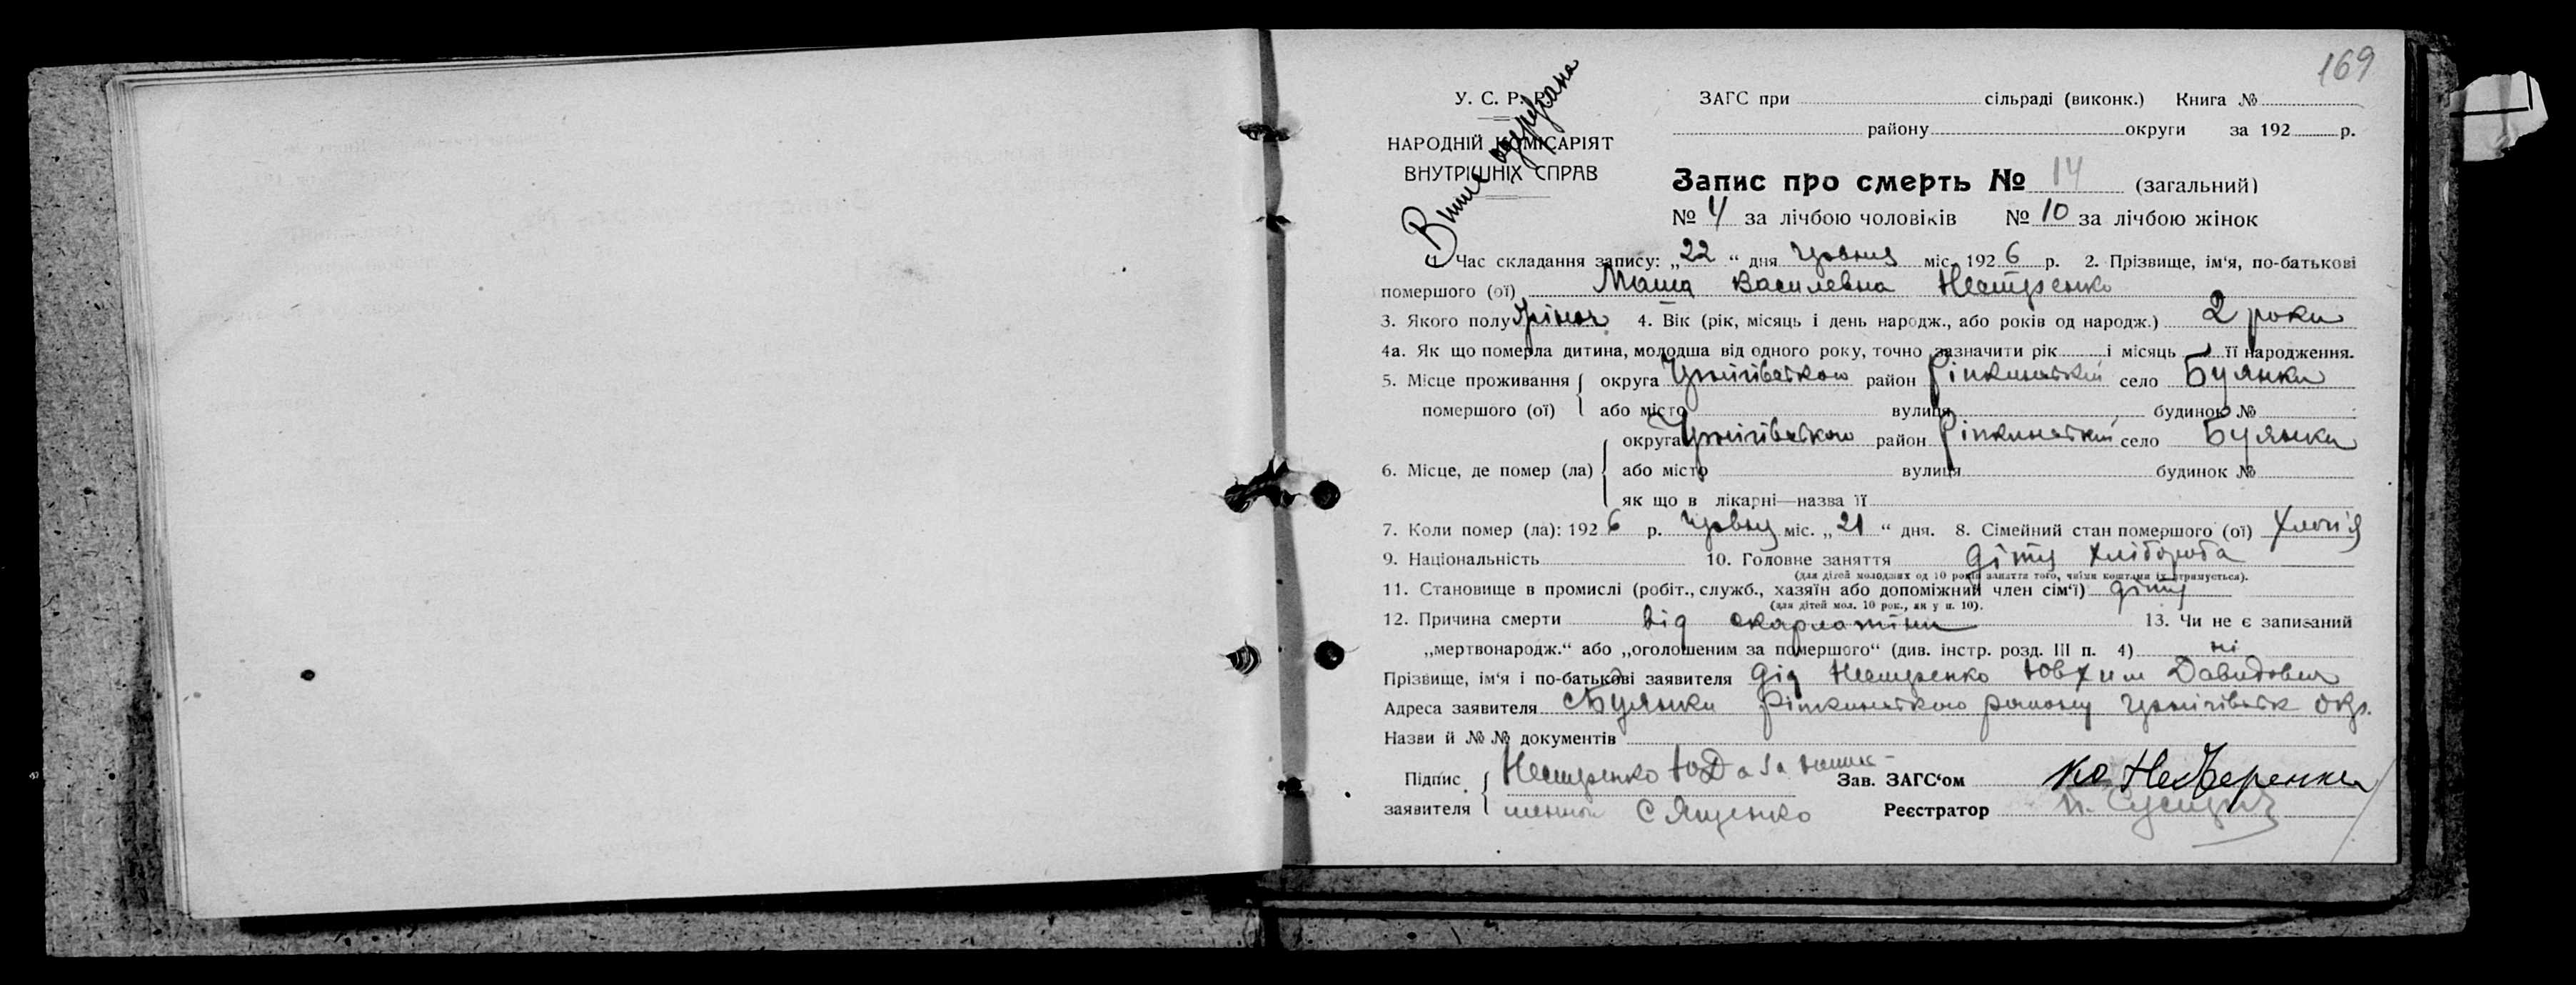 169
У. С. Р. Р.
НАРОДНІЙ КОМІСАРІЯТ
ВНУТРІШНІХ СПРАВ
ЗАГС при сільраді (виконк.) Книга №
району округи за 192 р.
Запис про смерть № 14 (загальний)
№ 4 за лічбою чоловіків № 10 за лічбою жінок
1. Час складання запису: „22“ дня червня міс. 1926 р. 2. Прізвище, ім‘я, по-батькові
помершого (ої) Маша Василевна Нестеренко
3. Якого полу жіноч. 4. Вік (рік, місяць і день народж., або років од народж.) 2 роки
4а. Як що померла дитина, молодша від одного року, точно зазначити рік і місяць її народження.
5. Місце проживання округа Чернігівською район Ріпкинський село Буянки
помершого (ої) або місто вулиця будинок №
округа Чернігівською район Ріпкинський село Буянки
6. Місце, де помер (ла) або місто вулиця будинок №
як що в лікарні—назва її
7. Коли помер (ла): 1926 р. червня міс. „21“ дня. 8. Сімейний стан помершого (ої)
9. Національність 10. Головне заняття дітя хлібороба
(для дітей молодших од 10 років заняття того, чиїми коштами їх утримується).
11. Становище в промислі (робіт., служб., хазяїн або допоміжний член сім‘ї) дітя
(для дітей мол. 10 рок., як у п. 10).
12. Причина смерти від скарлатіни 13. Чи не є записаний
„мертвонародж.“ або „оголошеним за помершого“ (див. інстр. розд. III п. 4) ні
Прізвище, ім‘я і по-батькові заявителя дід НестеренкоЮвхим Давидович
Адреса заявителя с Буянки Ріпкинського району Чернігівськ окр.
Назви й № № документів
Підпис Нестеренко Ю Д а за Зав. ЗАГС‘ом Нестеренко
заявителя С Ященко Реєстратор